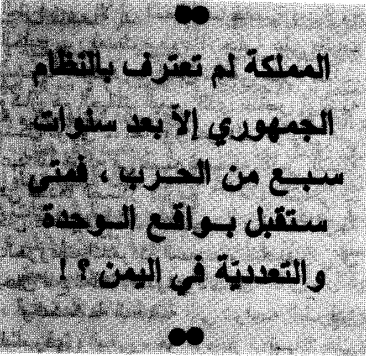 المملكة لم تعترف بالنظام
الجمهوري إلاّ بعد سنوات
سبع من الحرب ، فمتى
ستقبل بواقع الوحدة
والتعدديّة في اليمن ؟ !